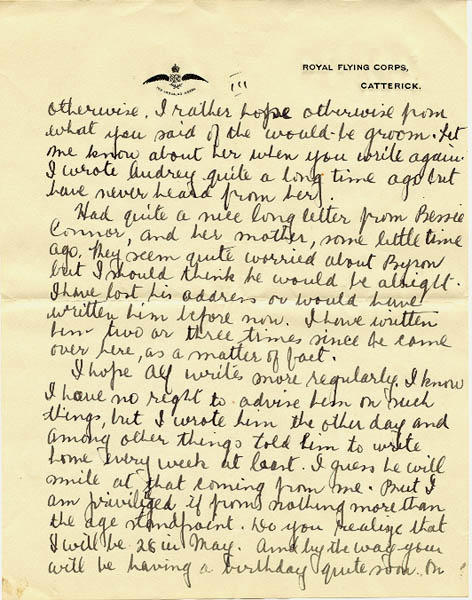 ROYAL FLYING CORPS,
CATTERICK.
III
otherwise. I rather hope otherwise from
what you said of the would-be groom. Let
me know about her when you write again.
I wrote Audrey quite a long time ago but
have never heard from her.
Had quite a nice long letter from Bessie
Connor, and her mother, some little time
ago. They seem quite worried about Byron
but I should think he would be alright.
I have lost his address or would have
written him before now. I have written
him two or three times since he came
over here, as a matter of fact.
I hope Alf writes more regularly. I know
I have no right to advise him on such
things, but I wrote him the other day and
among other things told him to write
home every week at least. I guess he will
smile at that coming from me. But I
am priviliged if from nothing more than
the age standpoint. Do you realize that
I will be 26 in May. And by the way your
will be having a birthday quite soon. On